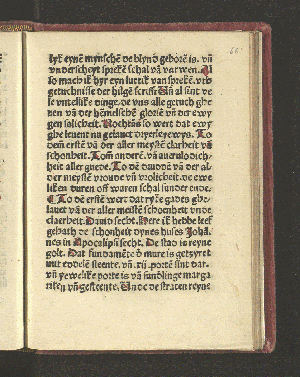 lyk eynē mynschē de blynd gebore is. vñ
vnderschoyt sprekē schal vā varwen. Al
so mach ik hyr eyn luttik van spreken. vth
getuchnisse der hilgē scrifft Uñ al sint ve
le vntelliker dinge. de vns alle getuch ghe
uen vā der hēmelschē glorien vñ der ewy
gen salicheit. Nochtās so wert dat ewy
ghe leuent na gelauet dryerleye wys. To
dem erstē vā der aller meystē claerheit vñ
schonheit. Tom anderē. vā auerulodich
heit aller guede. To dē drudden vā der al
der meystē vroude vñ vrolicheit. de ewe
liken duren off waren schal sunder ende.
¶ To dē erstē wert dat ryke gades ghe
lauet vā der aller meistē schoenheit vnde
claerheit. Dauid secht. Here ik hebbe leef
gehath de schonheit dynes huses Johā
nes in Apocalipsi secht. De stad is reyne
golt. Dat fundamēte d mure is getzyret
mit eddelē steente. vñ .xij. portē sint dar.
vñ yewelike porte is vā sundlinge marga
riten vñ gesteente. Unde de straten reyne